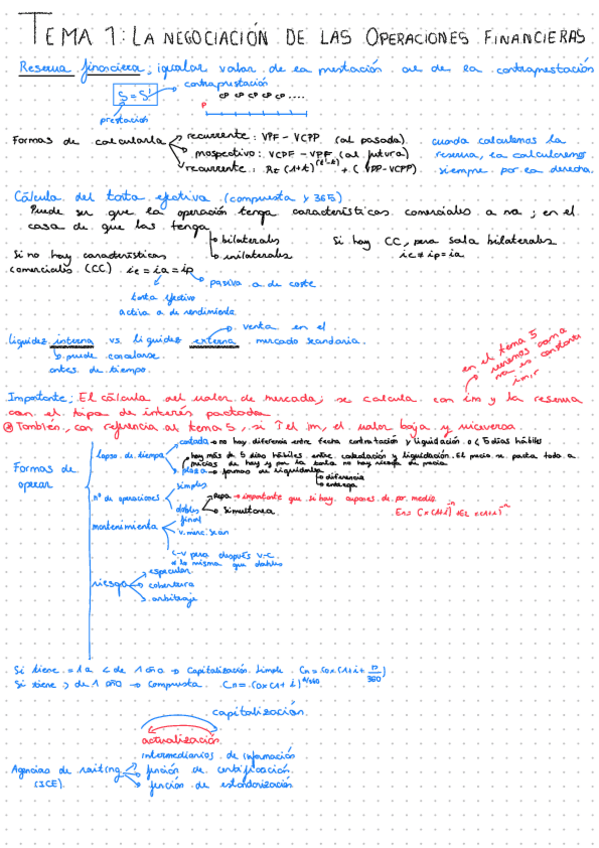 TEMA 1: LA NEGOCIACIÓN DE LAS OPERACIONES FINANCIERAS
Reserva financiera; igualar valor de la prestación al de la contraprestación
S = S' contraprestación CP CP CP CP CP ....
P
prestación
Formas de calcularla
recurrente: VPF - VCPP (al pasado).
prospectivo: VCPF - VPF (al futuro)
recurrente:
cuando calculemos la reserva, la calcularemos siempre por la derecha.
Cálculo del tanto efectivo (compuesta y 365)
Puede ser que la operación tenga características comerciales o no; en el caso de que las tenga
bilaterales
unilaterales
Si hay CC, pero solo bilaterales
ie ≠ ip = ia
Si no hay características comerciales (CC) ie = ia = ip
pasivo o de coste.
tanto efectivo
activo o de rendimiento
liquidez interna vs. liquidez externa
venta en el mercado secundario.
puede cancelarse antes de tiempo.
en el tema 5 veremos como no es constante im,r
Importante; El cálculo del valor de mercado; se calcula con im y la reserva con el tipo de interés pactado.
También, con referencia al tema 5, si ↑ el im, el valor baja y viceversa
Formas de operar
lapso de tiempo
contado → no hay diferencia entre fecha contratación y liquidación o < 5 días hábiles
plazo
hay más de 5 días hábiles entre contratación y liquidación. El precio se pacta todo a precios de hoy y por lo tanto no hay riesgo de precio
formas de liquidarla
diferencia
entrega
nº de operaciones
simples
dobles
Repo → importante que si hay cupones de por medio
simultánea
mantenimiento
final
v. merc. secun
riesgo
C-V pero después V-C
o lo mismo que dobles
especular
cobertura
arbitraje
Si tiene = 1 a < de 1 año → Capitalización Simple Cn = Co x (1 + i · n/360)
Si tiene > de 1 año → Compuesta
capitalización
actualización
Agencias de raiting (ICE)
intermediarios de información
función de certificación
función de estandarización